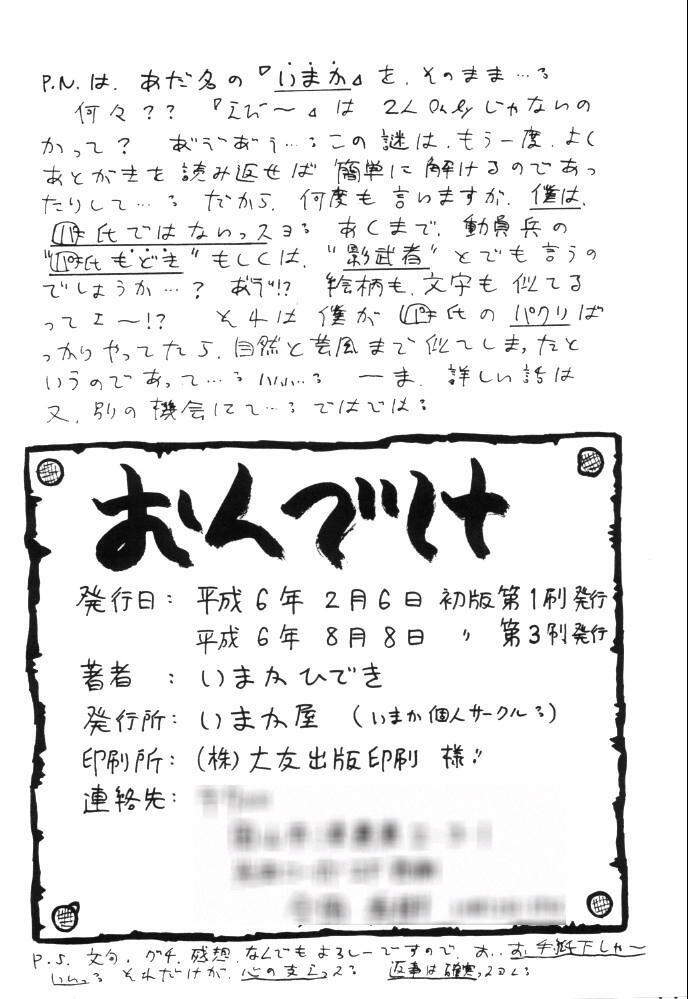 P.N.は、あだ名の『いまか』を、そのまま…る
何々?? 『えび〜』は 2人Onlyじゃないの
かって? あ゛ぅあ゛ぅ…る この謎は、もう一度、よく
あとがきを 読み返せば 簡単に 解けるのであっ
たりして…る だから、何度も言いますが、僕は、
氏ではないっスヨる あくまで、動員兵の
"氏もどき" もしくは、"影武者" とでも言うの
でしょうか…? あ゛ぅ!? 絵柄も、文字も 似てる
ってェ〜!? それは 僕が 氏の パクリば
っかりやってたら、自然と芸風まで似てしまったと
いうのであって…る いいい…る ーま、詳しい話は
又、別の機会にて…る ではではる
おんでけ
発行日: 平成6年 2月6日 初版第1刷発行
平成6年 8月8日 〃 第3刷発行
著者 : いまかひでき
発行所: いまか屋 (いまか個人サークルる)
印刷所: (株)大友出版印刷 様!!
連絡先:
P.S. 文句、グチ、感想、なんでもよろしーですので、お、お手紙下しゃ〜
いいっる それだけが、心の支えっスる 返事は確実っスよる